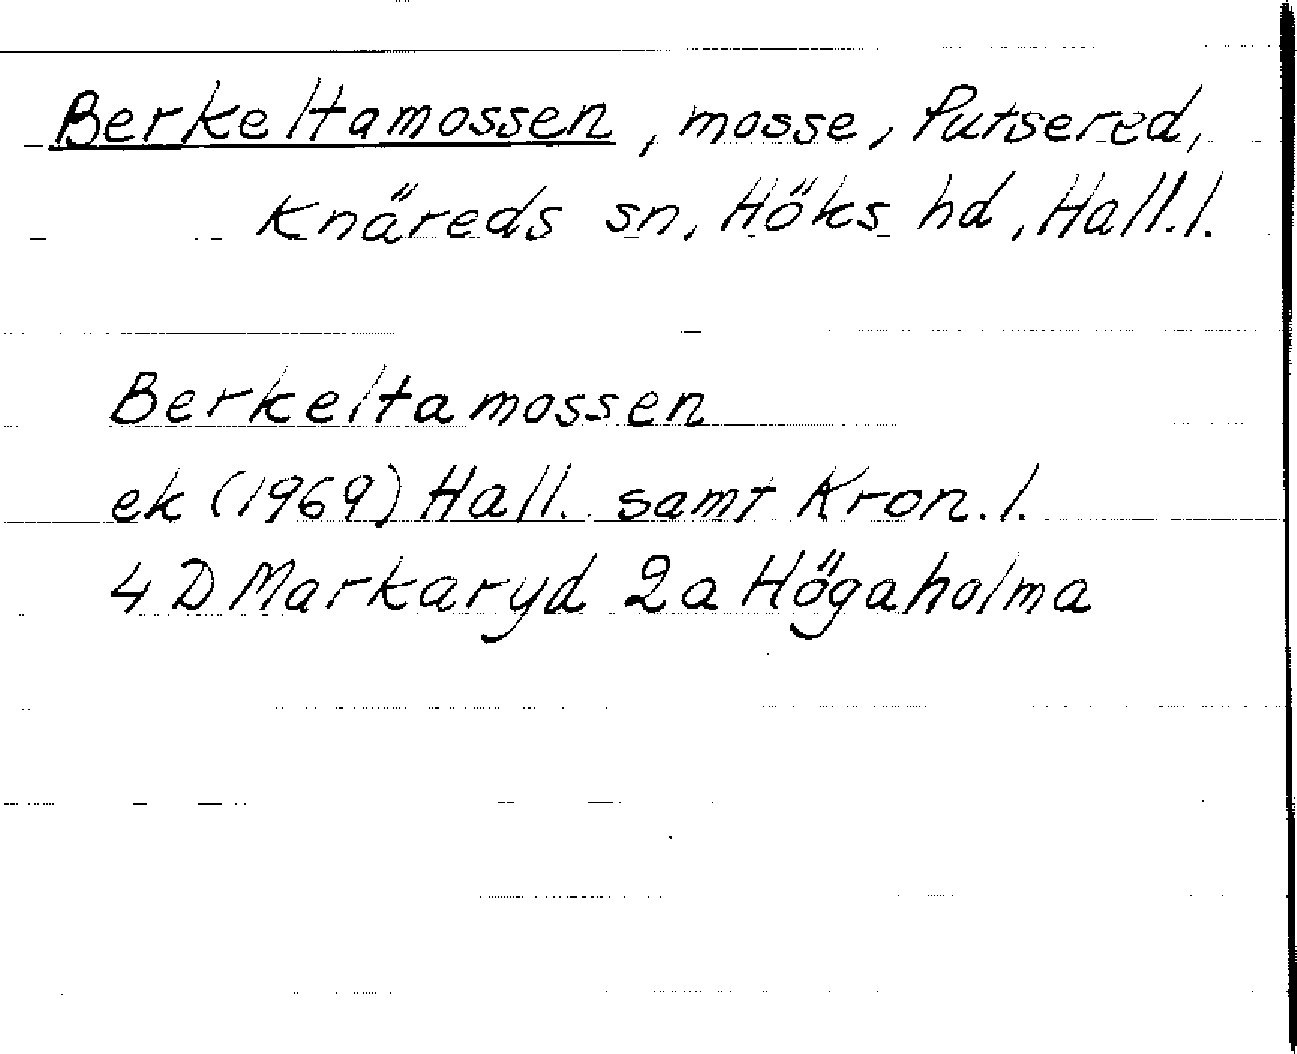 Berkeltamossen, mosse, Putsered,
Knäreds sn, Höks hd, Hall.l.
Berkeltamossen
ek (1969) Hall. samt Kron.l.
4 D Markaryd 2a Högaholma